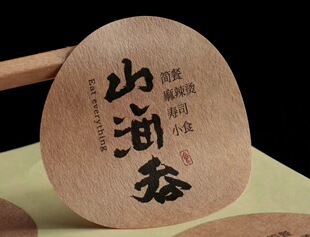 山海吞
Eat everything
简餐
麻辣烫
寿司
小食